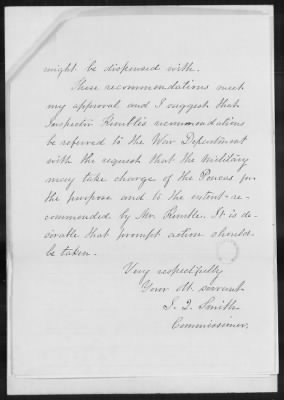 might be dispensed with.
These recommendations meet
my approval and I suggest that
Inspector Kemble's recommendations
be referred to the War Department
with the request that the military
may take charge of the Poncas for
the purpose and to the extent re-
commended by Mr. Kemble. It is de-
sirable that prompt action should
be taken.
Very respectfully
Your Obt. servant
J. Q. Smith
Commissioner.